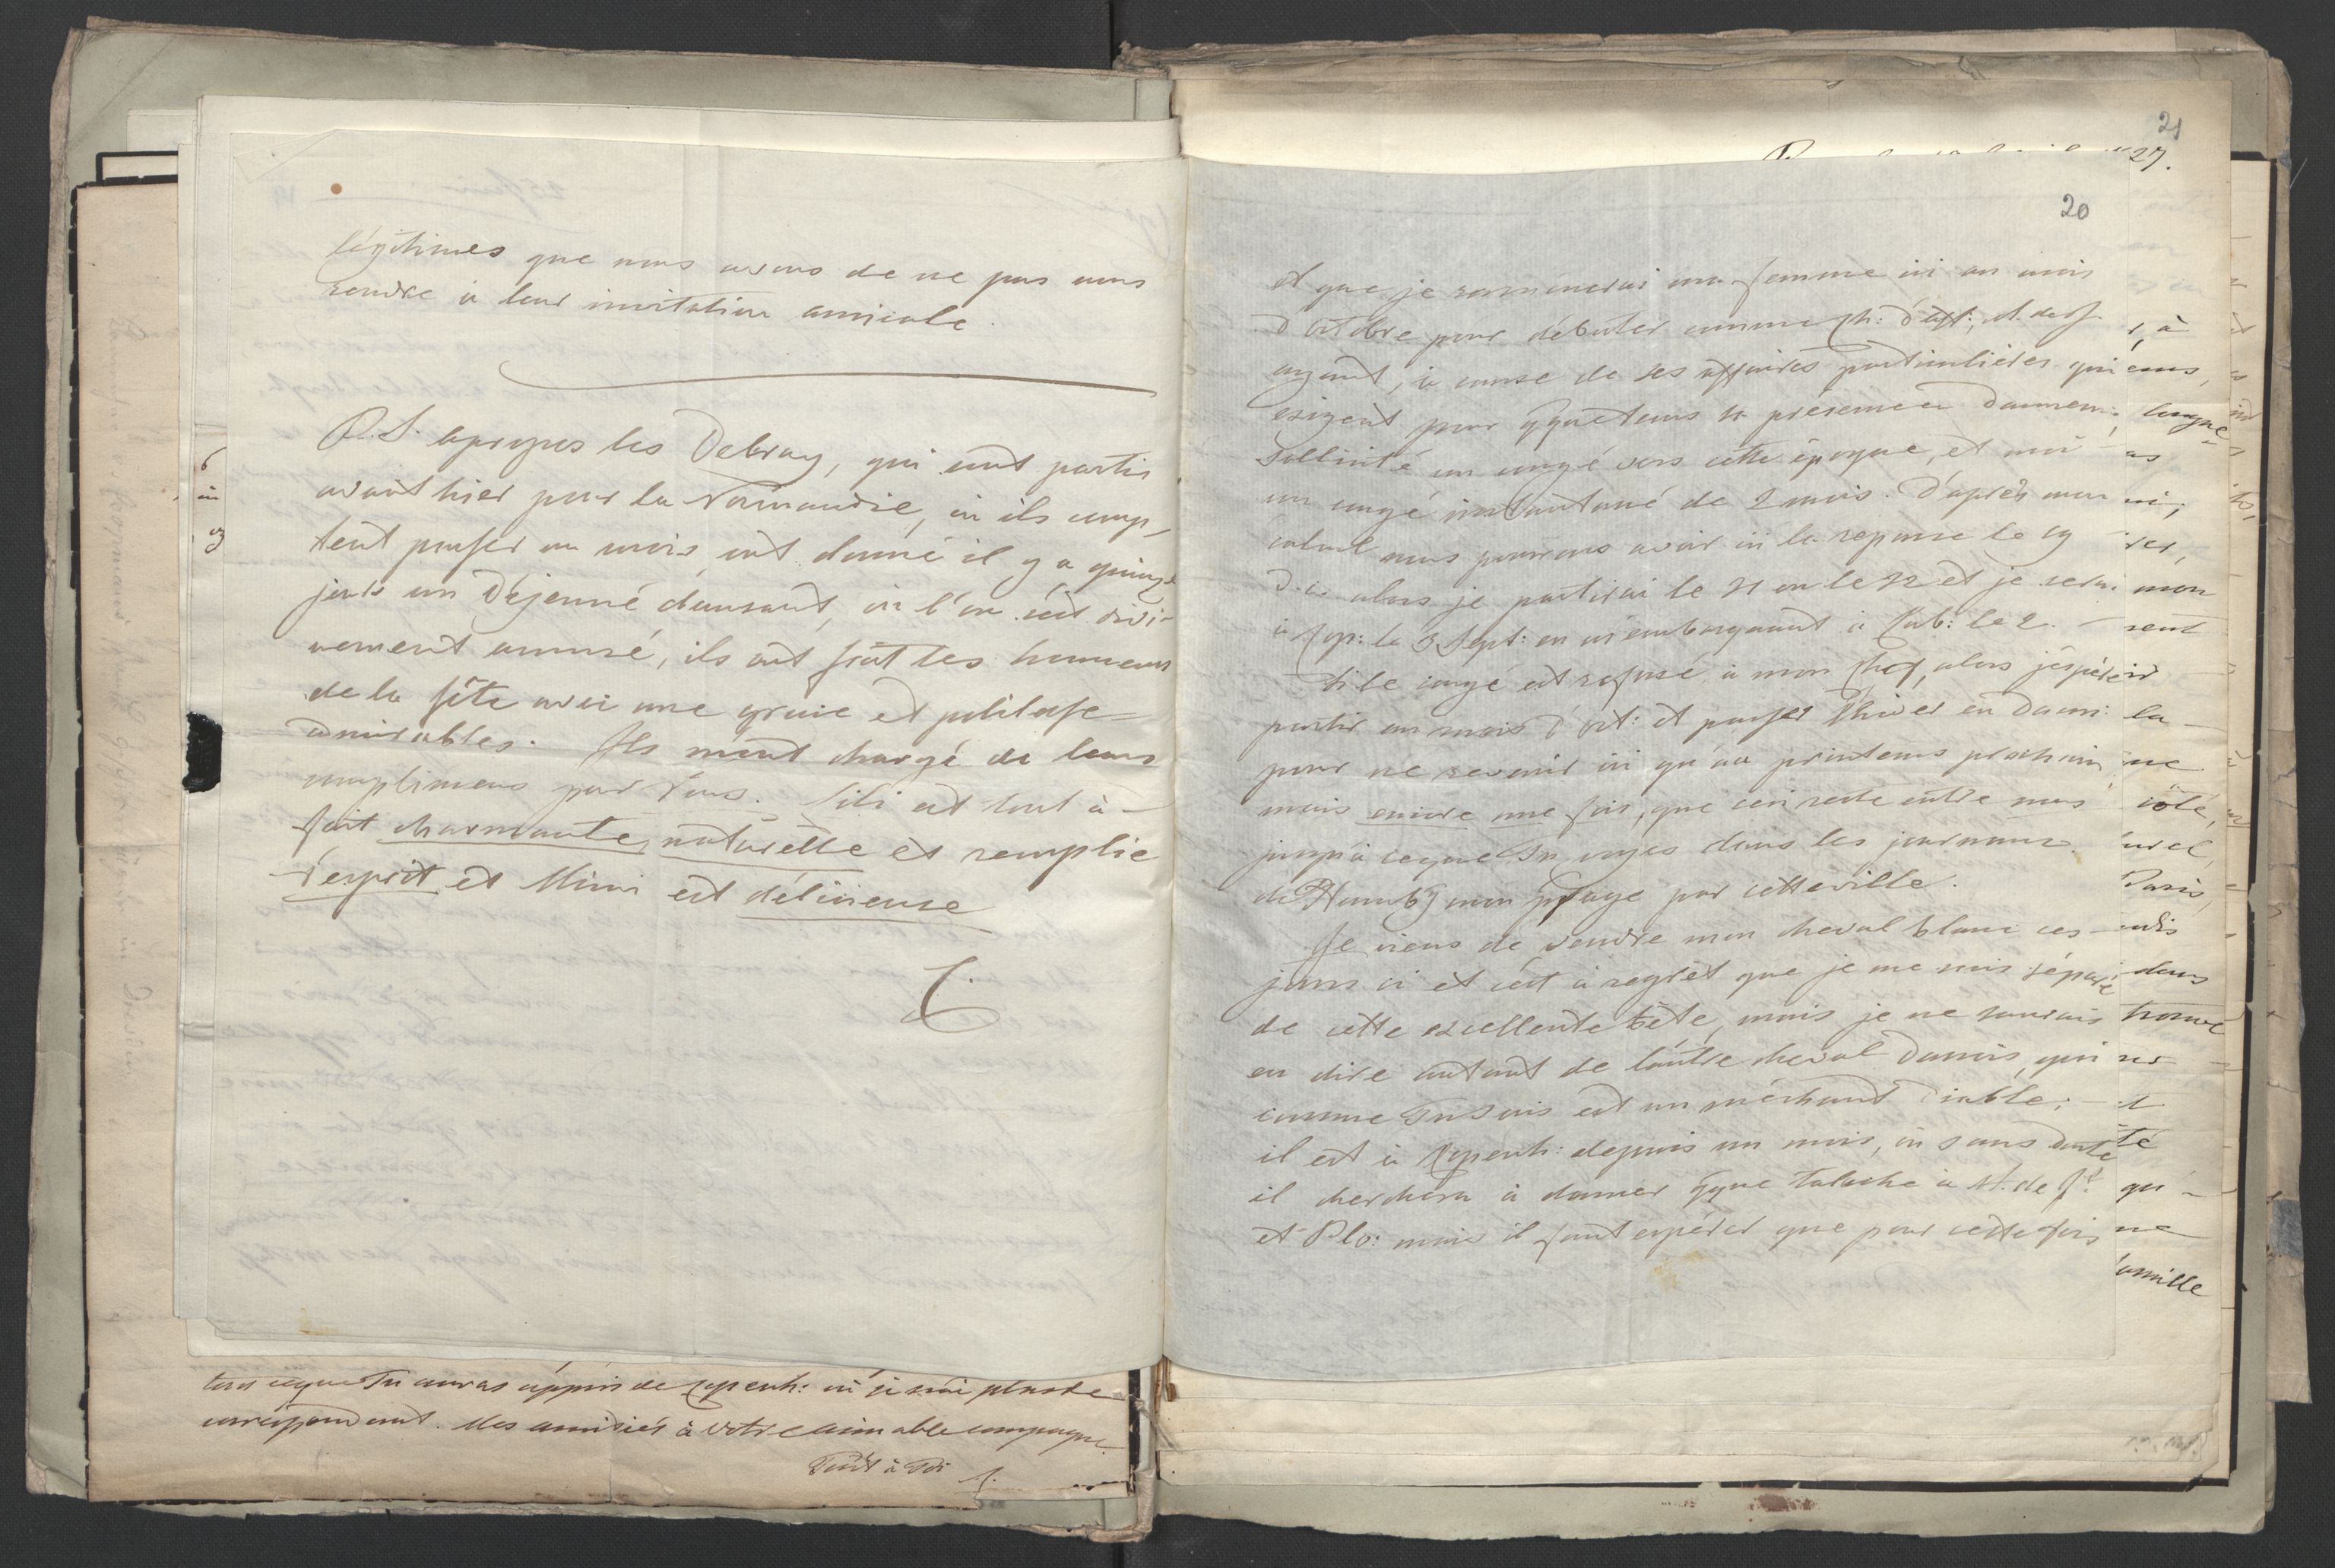 légitimes que nous avons de ne pas nous
rendre à leur invitation amicale.
P.S. apropos les Debray, qui sont partis
avant hier pour la Normandie, où ils comp-
tent passer un mois, ont donné il y a quinze
jours un Déjeuné dansant, où l'on s'est divi-
nement amusé, ils ont fait les honneurs
de la fête avec une grace et politesse
admirables. Ils m'ont chargé de leurs
complimens pour Vous. Lili est tout à
fait charmante, naturelle et remplie
d'esprit et Mimi est délicieuse
C.
tout ceque Tu auras appris de Copenh: où je n'ai plus de
correspondant. Mes amitiés à votre aimable compagne.
Tout à Toi
21
27.
20
et que je ramenerai ma femme ici au mois
d'octobre pour débuter comme Ch: d'aff:,
ayant, à cause de ses affaires particulières qui
exigent pour qque tems sa présence en Dannem:,
sollicité un congé vers cette époque, et moi
un congé instantané de 2 mois. D'après mon
calcul nous pourrons avoir ici la reponse le 19
d.c. alors je partirai le 21 ou le 22 et je serai
à Cop: le 3 Sept: en m'embarquant à Lub: le 2.
Si le congé est refusé à mon Chef, alors j'éspère
partir au mois d'oct: et passer l'hiver en Dann:
pour ne revenir ici qu'au printems prochain
mais encore une fois, que ceci reste entre nous
jusqu'à ceque Tu voyes dans les journaux
de Hambg mon passage par cette ville.
Je viens de vendre mon cheval blanc ces
jours ci et c'est à regrèt que je me suis séparé
de cette excellente bête, mais je ne saurais
en dire autant de l'autre cheval Danois, qui
comme Tu sais est un méchant Diable;
il est à Copenh: depuis un mois, où sans doute
il cherchera à donner qque taloche à
et Plo: mais il faut espérer que pour cette fois
à
longue
mon
sent
la
ne
côté,
Paris,
dans
trouve
té
ne
famille